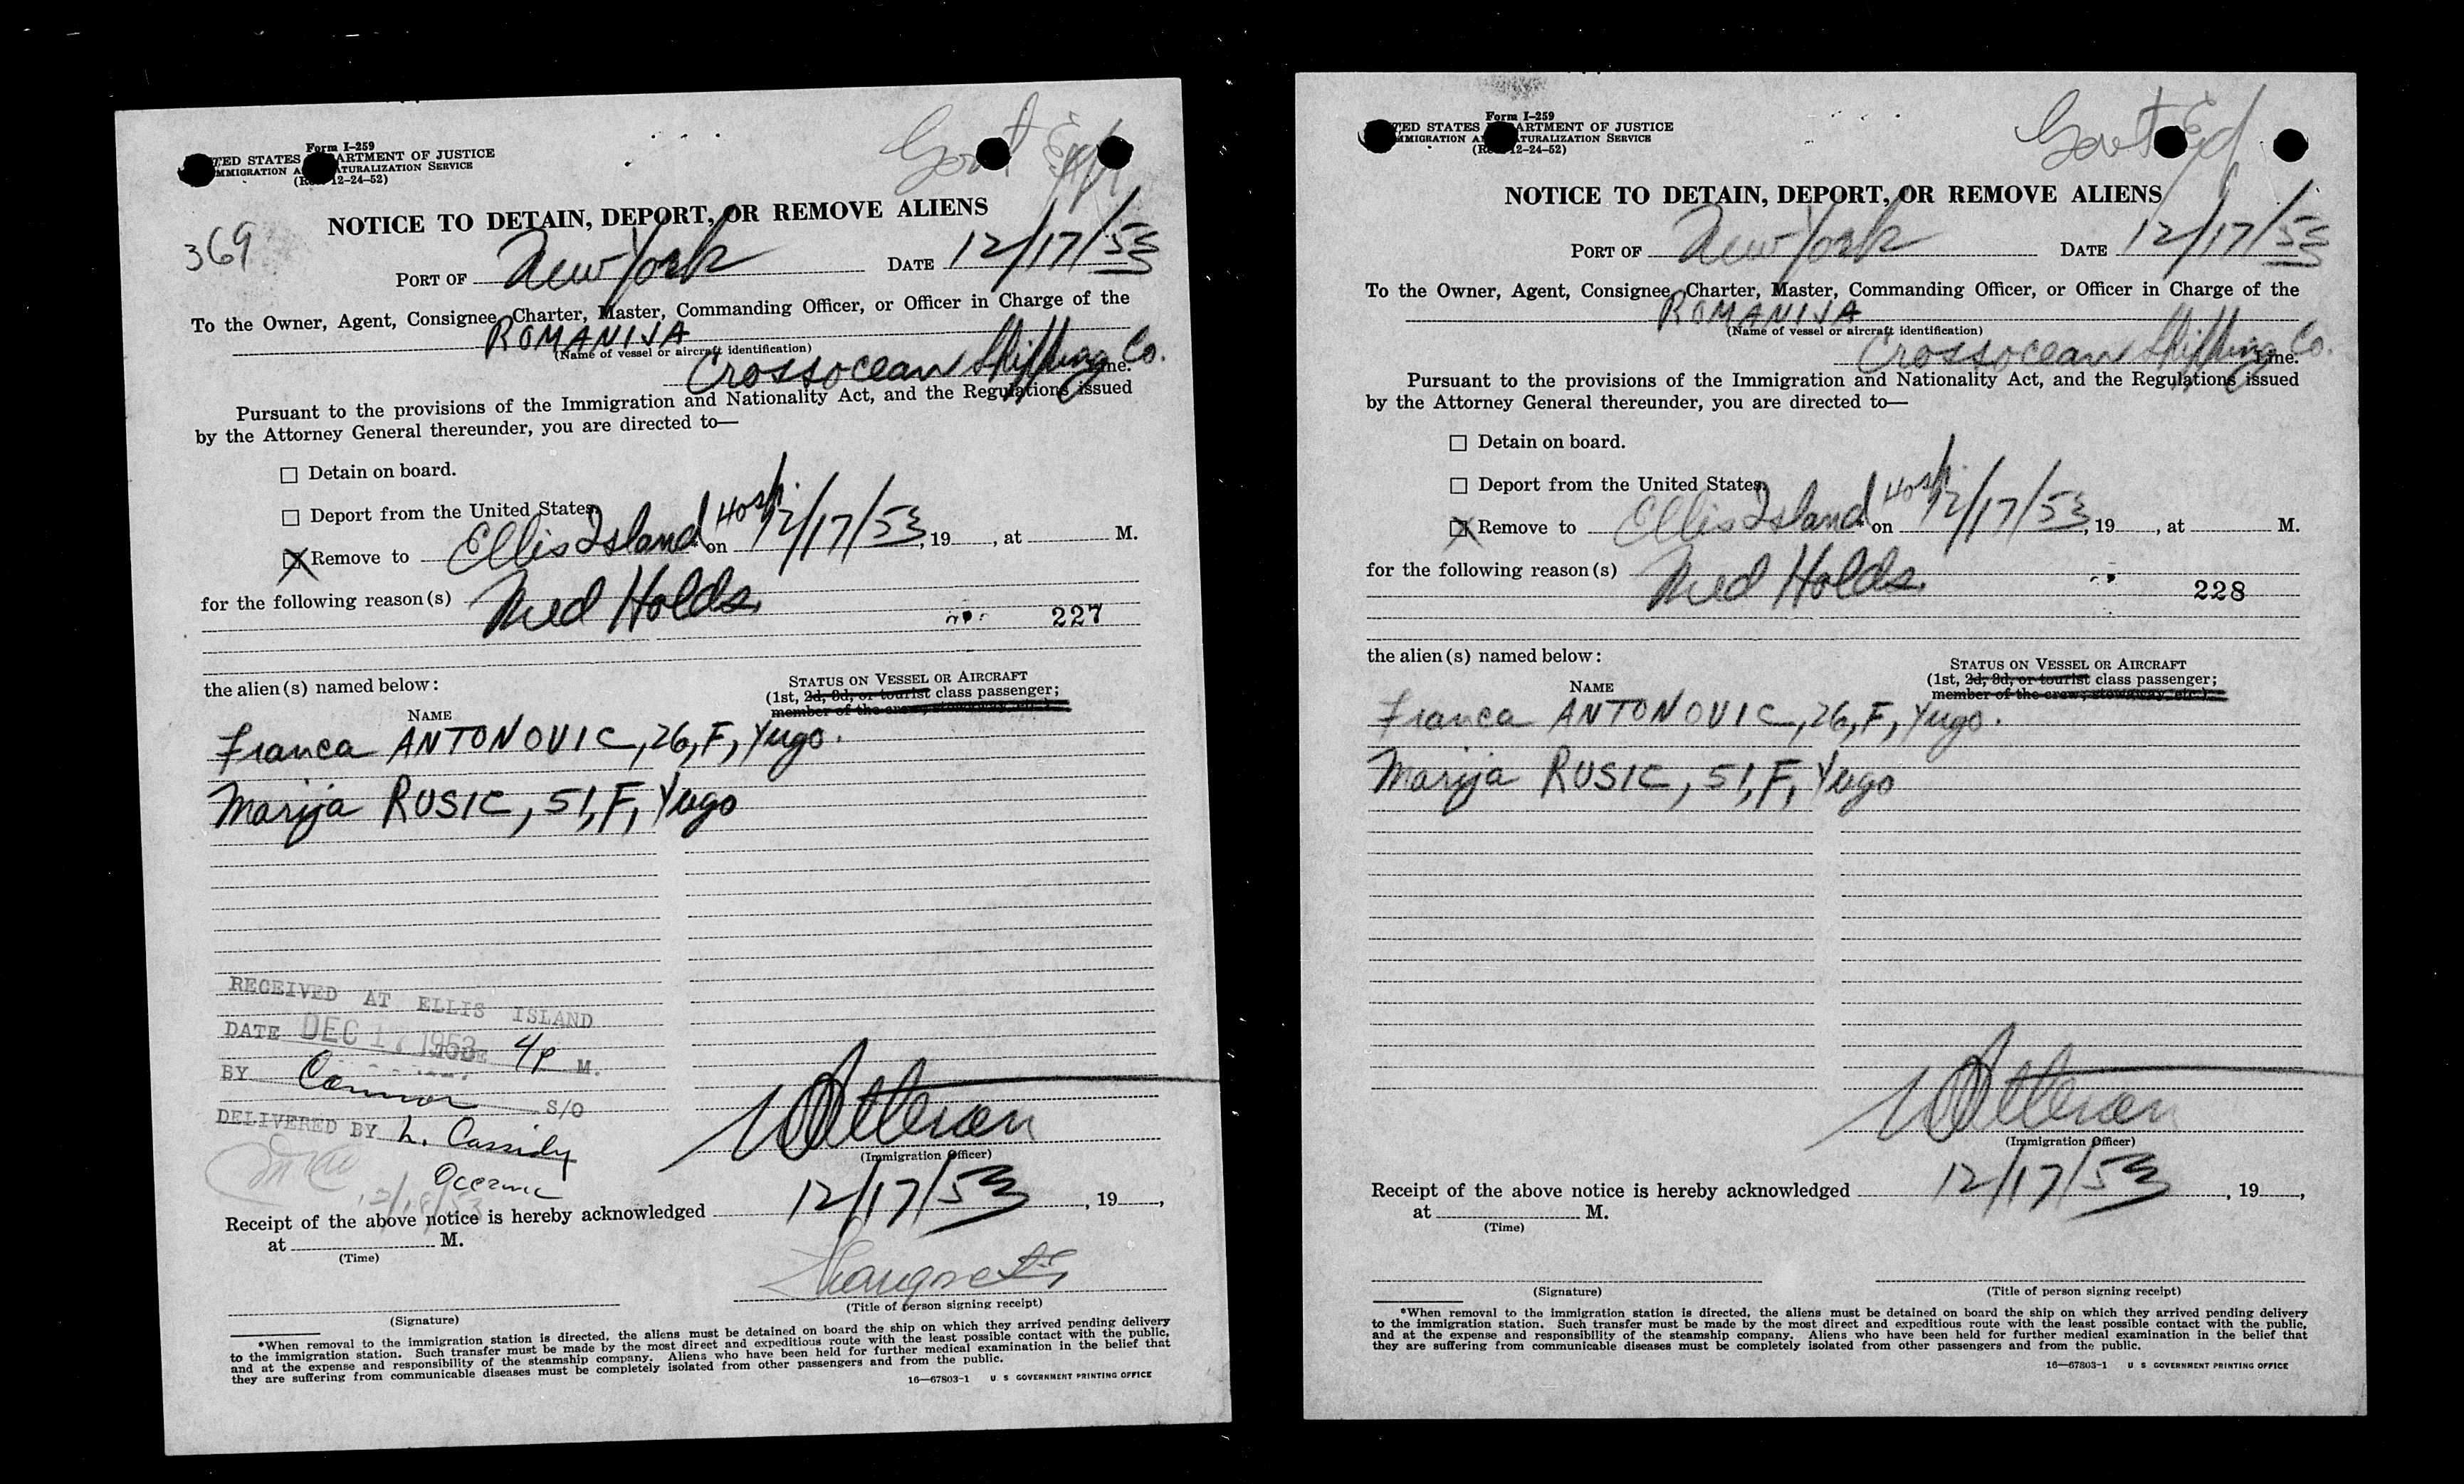 Form I-259
TED STATES ARTMENT OF JUSTICE
MMIGRATION A TURALIZATION SERVICE
(R 12-24-52)
Govt Exp
369
NOTICE TO DETAIN, DEPORT, OR REMOVE ALIENS
PORT OF New York DATE 12/17/53
To the Owner, Agent, Consignee, Charter, Master, Commanding Officer, or Officer in Charge of the
ROMANIJA
(Name of vessel or aircraft identification)
Crossocean Shipping Co. Line.
Pursuant to the provisions of the Immigration and Nationality Act, and the Regulations issued
by the Attorney General thereunder, you are directed to—
☐ Detain on board.
☐ Deport from the United States.
☒ Remove to Ellis Island Hosp. on 12/17/53, 19, at M.
for the following reason(s) Med Holds.
227
the alien(s) named below:
STATUS ON VESSEL OR AIRCRAFT
(1st, 2d, 3d, or tourist class passenger;
member of the crew, stowaway, etc.)
NAME
Franca ANTONOVIC, 26, F, Yugo.
Marija RUSIC, 51, F, Yugo
RECEIVED AT ELLIS ISLAND
DATE DEC 17 1953 4P M.
BY Connor S/O
DELIVERED BY L. Cassidy
(Immigration Officer)
Oceanic
12/18/53
Receipt of the above notice is hereby acknowledged 12/17/53, 19,
at M.
(Time)
(Signature)
(Title of person signing receipt)
*When removal to the immigration station is directed, the aliens must be detained on board the ship on which they arrived pending delivery
to the immigration station. Such transfer must be made by the most direct and expeditious route with the least possible contact with the public,
and at the expense and responsibility of the steamship company. Aliens who have been held for further medical examination in the belief that
they are suffering from communicable diseases must be completely isolated from other passengers and from the public.
16—67803-1 U S GOVERNMENT PRINTING OFFICE
Form I-259
TED STATES ARTMENT OF JUSTICE
MMIGRATION A TURALIZATION SERVICE
(R 12-24-52)
Govt Exp
NOTICE TO DETAIN, DEPORT, OR REMOVE ALIENS
PORT OF New York DATE 12/17/53
To the Owner, Agent, Consignee, Charter, Master, Commanding Officer, or Officer in Charge of the
ROMANIJA
(Name of vessel or aircraft identification)
Crossocean Shipping Co. Line.
Pursuant to the provisions of the Immigration and Nationality Act, and the Regulations issued
by the Attorney General thereunder, you are directed to—
☐ Detain on board.
☐ Deport from the United States.
☒ Remove to Ellis Island Hosp. on 12/17/53, 19, at M.
for the following reason(s) Med Holds.
228
the alien(s) named below:
STATUS ON VESSEL OR AIRCRAFT
(1st, 2d, 3d, or tourist class passenger;
member of the crew, stowaway, etc.)
NAME
Franca ANTONOVIC, 26, F, Yugo.
Marija RUSIC, 51, F, Yugo
(Immigration Officer)
Receipt of the above notice is hereby acknowledged 12/17/53, 19,
at M.
(Time)
(Signature)
(Title of person signing receipt)
*When removal to the immigration station is directed, the aliens must be detained on board the ship on which they arrived pending delivery
to the immigration station. Such transfer must be made by the most direct and expeditious route with the least possible contact with the public,
and at the expense and responsibility of the steamship company. Aliens who have been held for further medical examination in the belief that
they are suffering from communicable diseases must be completely isolated from other passengers and from the public.
16—67803-1 U S GOVERNMENT PRINTING OFFICE